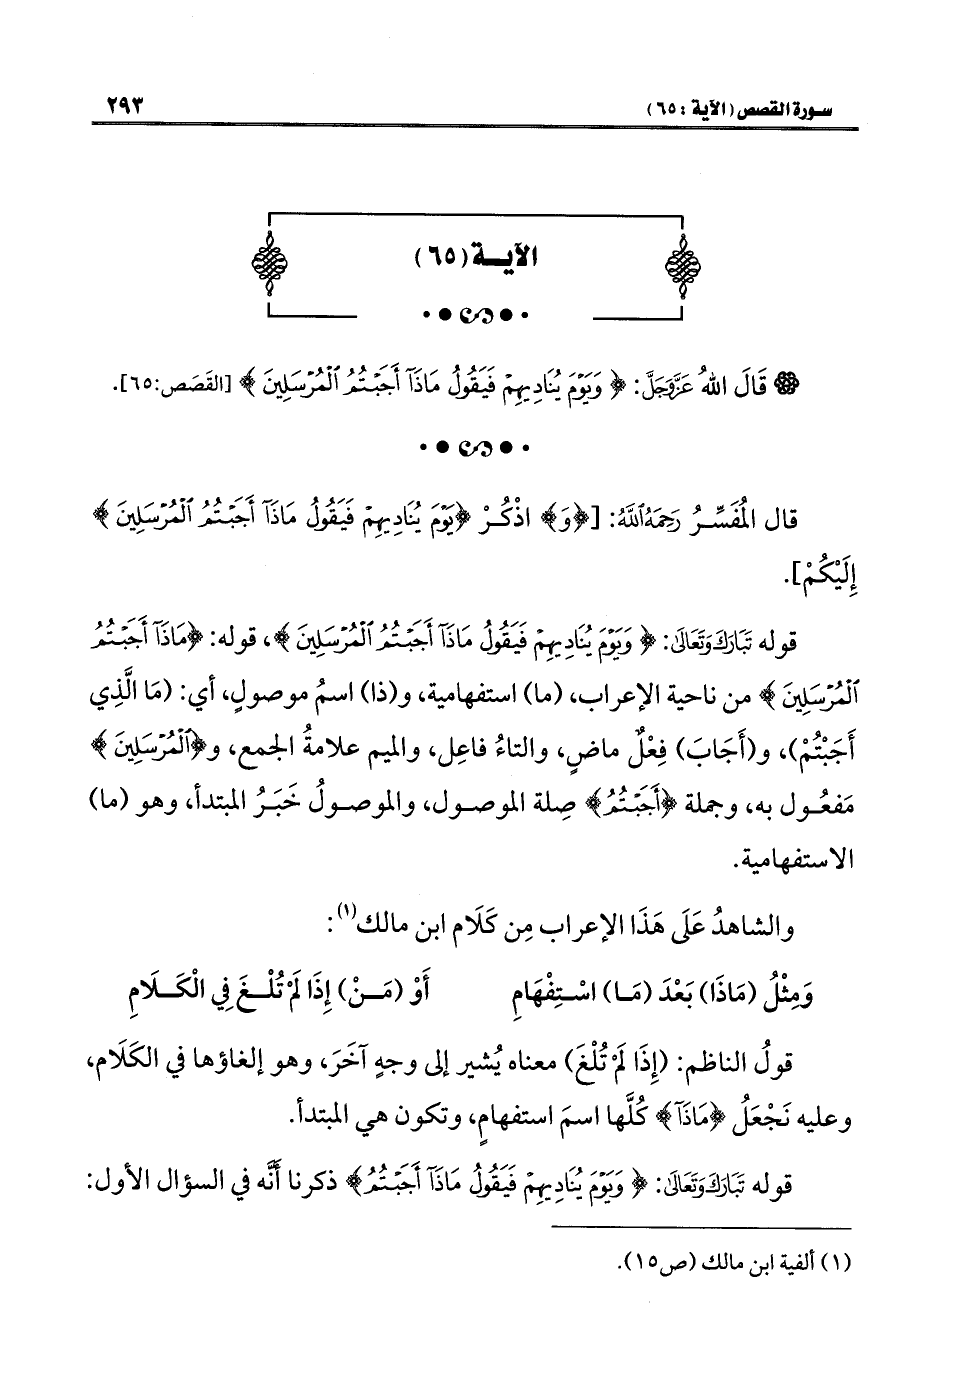 سورة القصص (الآية : ٦٥)
٢٩٣
الآيــة (٦٥)
قَالَ اللهُ عَزَّوَجَلَّ: ﴿ وَيَوْمَ يُنَادِيهِمْ فَيَقُولُ مَاذَآ أَجَبْتُمُ ٱلْمُرْسَلِينَ ﴾ [القَصَص:٦٥].
قال المُفَسِّرُ رَحِمَهُ اللَّهُ: [﴿وَ﴾ اذْكُرْ ﴿يَوْمَ يُنَادِيهِمْ فَيَقُولُ مَاذَآ أَجَبْتُمُ ٱلْمُرْسَلِينَ ﴾
إِلَيْكُمْ].
قوله تَبَارَكَ وَتَعَالَى: ﴿ وَيَوْمَ يُنَادِيهِمْ فَيَقُولُ مَاذَآ أَجَبْتُمُ ٱلْمُرْسَلِينَ ﴾، قوله: ﴿مَاذَآ أَجَبْتُمُ
ٱلْمُرْسَلِينَ ﴾ من ناحية الإعراب، (ما) استفهامية، و(ذا) اسمُ موصولٍ، أي: (مَا الَّذِي
أَجَبْتُمْ)، و(أَجَابَ) فِعْلٌ ماضٍ، والتاءُ فاعِل، والميم علامةُ الجمع، و﴿ٱلْمُرْسَلِينَ ﴾
مَفعُول به، وجملة ﴿أَجَبْتُمُ﴾ صِلة الموصول، والموصولُ خَبَرُ المبتدأ، وهو (ما)
الاستفهامية.
والشاهدُ عَلَى هَذَا الإعراب مِن كَلَام ابن مالك(١):
وَمِثْلُ (مَاذَا) بَعْدَ (مَـا) اسْـتِفْهَامِ أَوْ (مَـنْ) إِذَا لَمْ تُلْـغَ فِي الْكَـلَامِ
قولُ الناظم: (إِذَا لَمْ تُلْغَ) معناه يُشير إلى وجهٍ آخَرَ، وهو إلغاؤها في الكَلَام،
وعليه نَجْعَلُ ﴿مَاذَآ﴾ كُلَّها اسمَ استفهامٍ، وتكون هي المبتدأ.
قوله تَبَارَكَ وَتَعَالَى: ﴿ وَيَوْمَ يُنَادِيهِمْ فَيَقُولُ مَاذَآ أَجَبْتُمُ﴾ ذكرنا أَنَّه في السؤال الأول:
(١) ألفية ابن مالك (ص١٥).